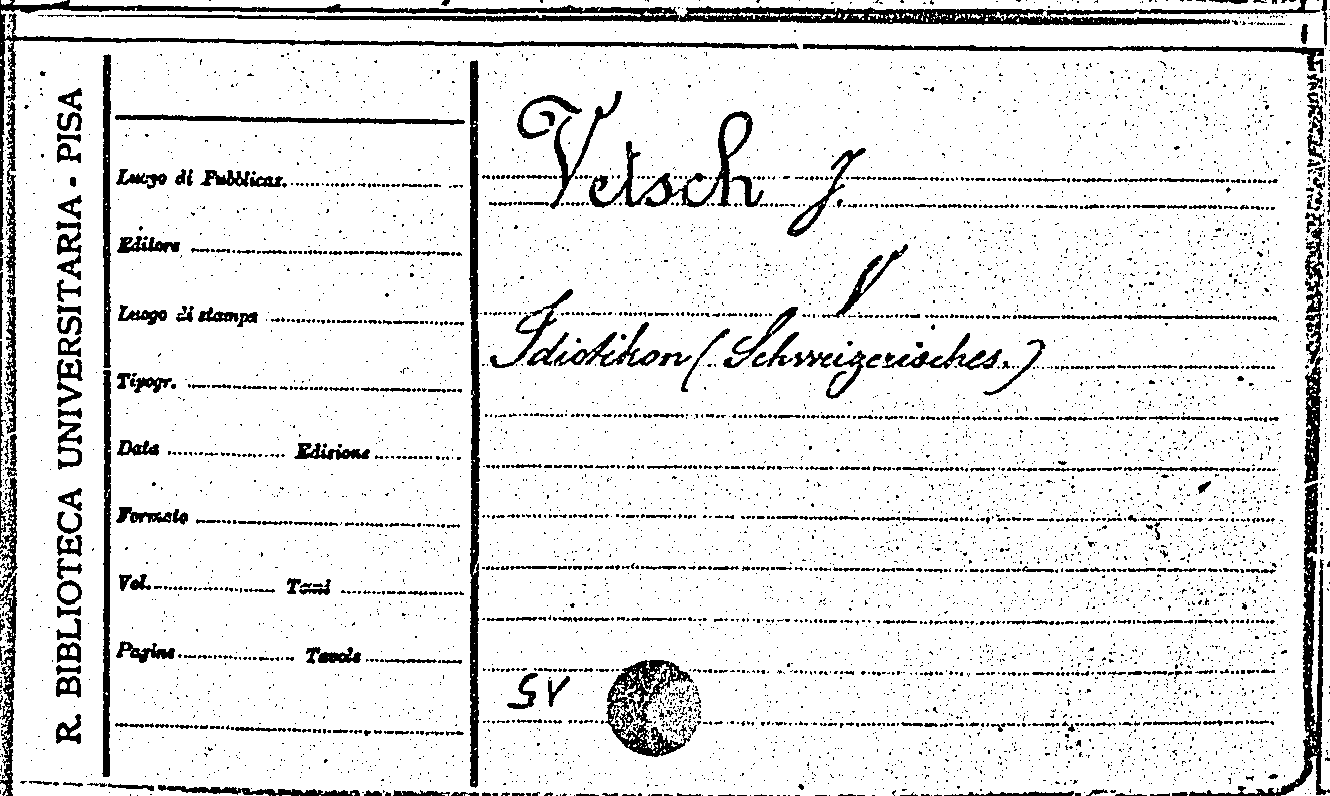 R. BIBLIOTECA UNIVERSITARIA - PISA
Luogo di Pubblicaz.
Editore
Luogo di stampa
Tipogr.
Data Edizione
Formato
Vol. Tomi
Pagine Tavole
Vetsch J.
V
Idiotikon (Schweizerisches.)